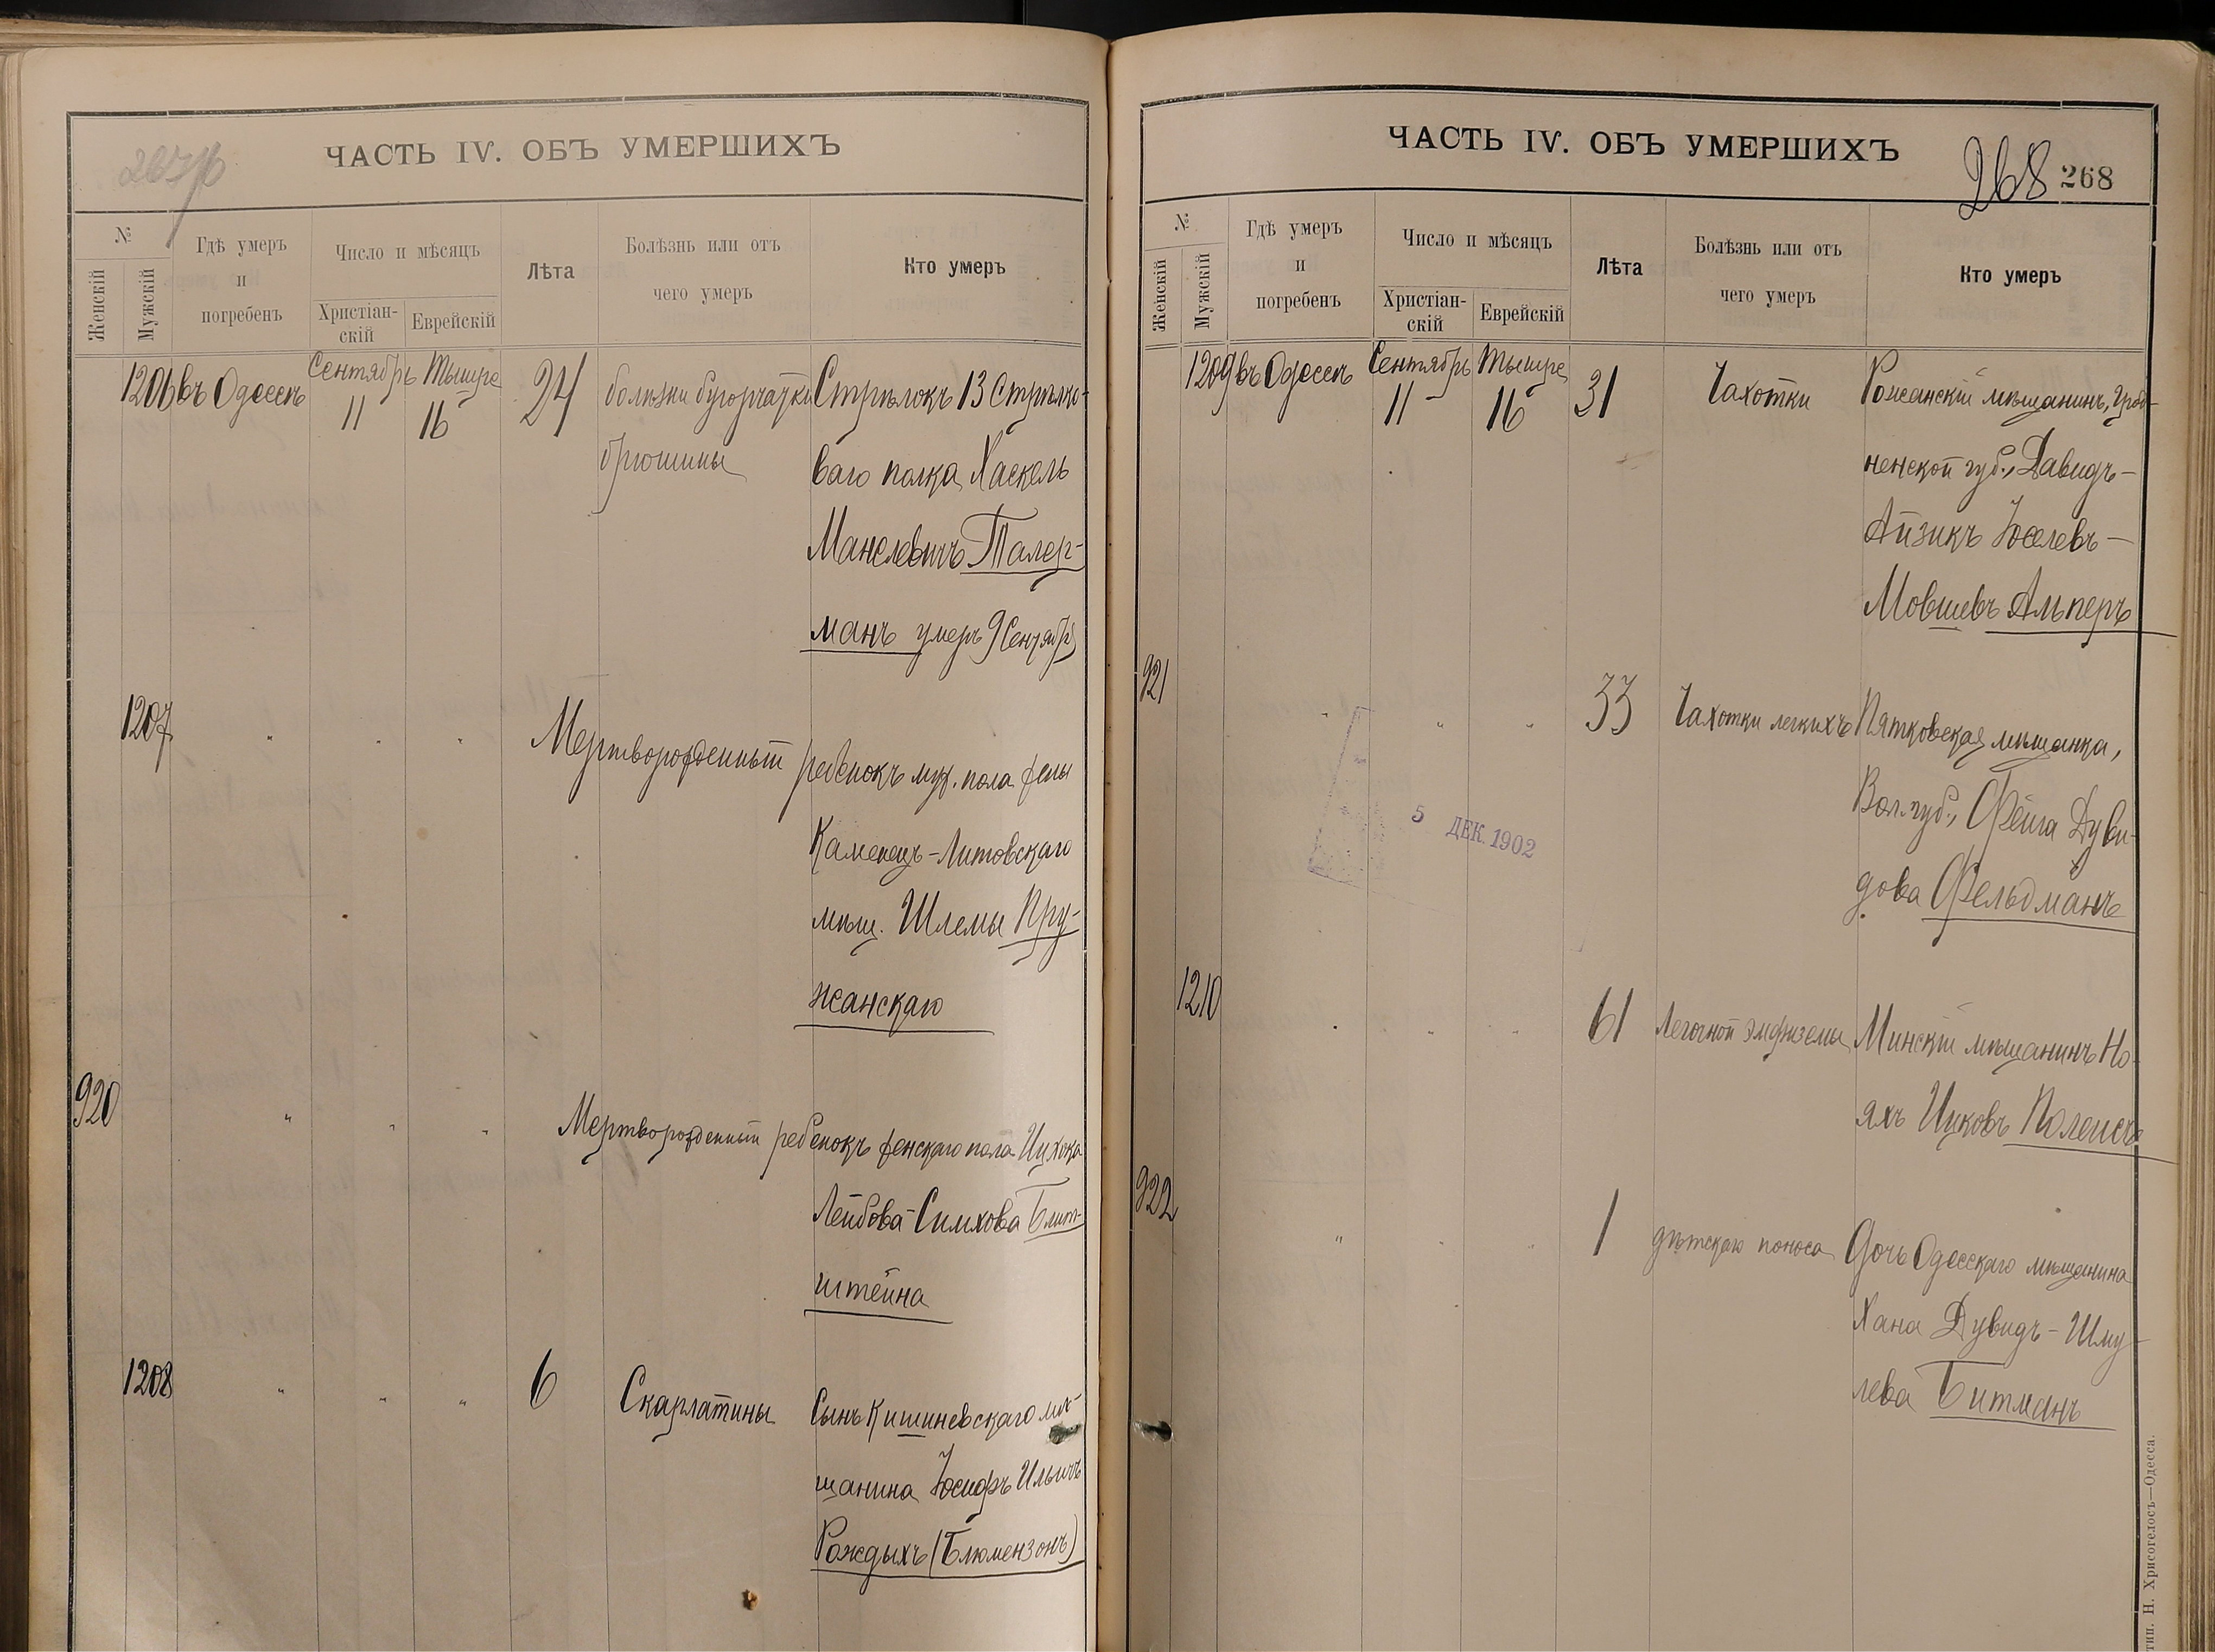 ЧАСТЬ IV. ОБЪ УМЕРШИХЪ
№
Женскій
Мужскій
Гдѣ умеръ
и
погребенъ
Число и мѣсяцъ
Христіан-
скій
Еврейскій
Лѣта
Болѣзнь или отъ
чего умеръ
Кто умеръ
1206 въ Одессѣ Сентябрь 11 Тишре 16 24 болѣзни бугорчатки Стрѣлокъ 13 Стрѣлко-
брюшины ваго полка Хаскель
Манелевичъ Талер-
манъ умеръ 9 Сентябр
1207 " " " Мертворожденный ребенокъ муж. пола жены
Каменецъ-Литовскаго
мѣщ. Шлемы Пру-
жанскаго
920 " " " Мертворожденный ребенокъ женскаго пола Ицхока
Лейбова-Симхова Блит-
штейна
1208 " " " 6 Скарлатины Сынъ Кишиневскаго мѣ-
щанина Іосифъ Ильичъ
Рождыхъ (Блюмензонъ)
ЧАСТЬ IV. ОБЪ УМЕРШИХЪ
268 268
№
Женскій
Мужскій
Гдѣ умеръ
и
погребенъ
Число и мѣсяцъ
Христіан-
скій
Еврейскій
Лѣта
Болѣзнь или отъ
чего умеръ
Кто умеръ
1209 въ Одессѣ Сентябрь 11 Тишре 16 31 Чахотки Рожанскій мѣщанинъ, Грод-
ненской губ., Давидъ-
Айзикъ Іоселевъ-
Мовшевъ Альперъ
921 " " 33 Чахотки легкихъ Пятковская мѣщанка,
Вол. губ., Фейга Дуви-
дова Фельдманъ
5 ДЕК. 1902
1210 " " " 61 Легочной эмфиземы Минскій мѣщанинъ Но-
яхъ Ицковъ Полеисъ
922 " " " 1 дѣтскаго поноса Дочь Одесскаго мѣщанина
Хана Дувидъ-Шму-
лева Битманъ
тип. Н. Хрисогелосъ—Одесса.